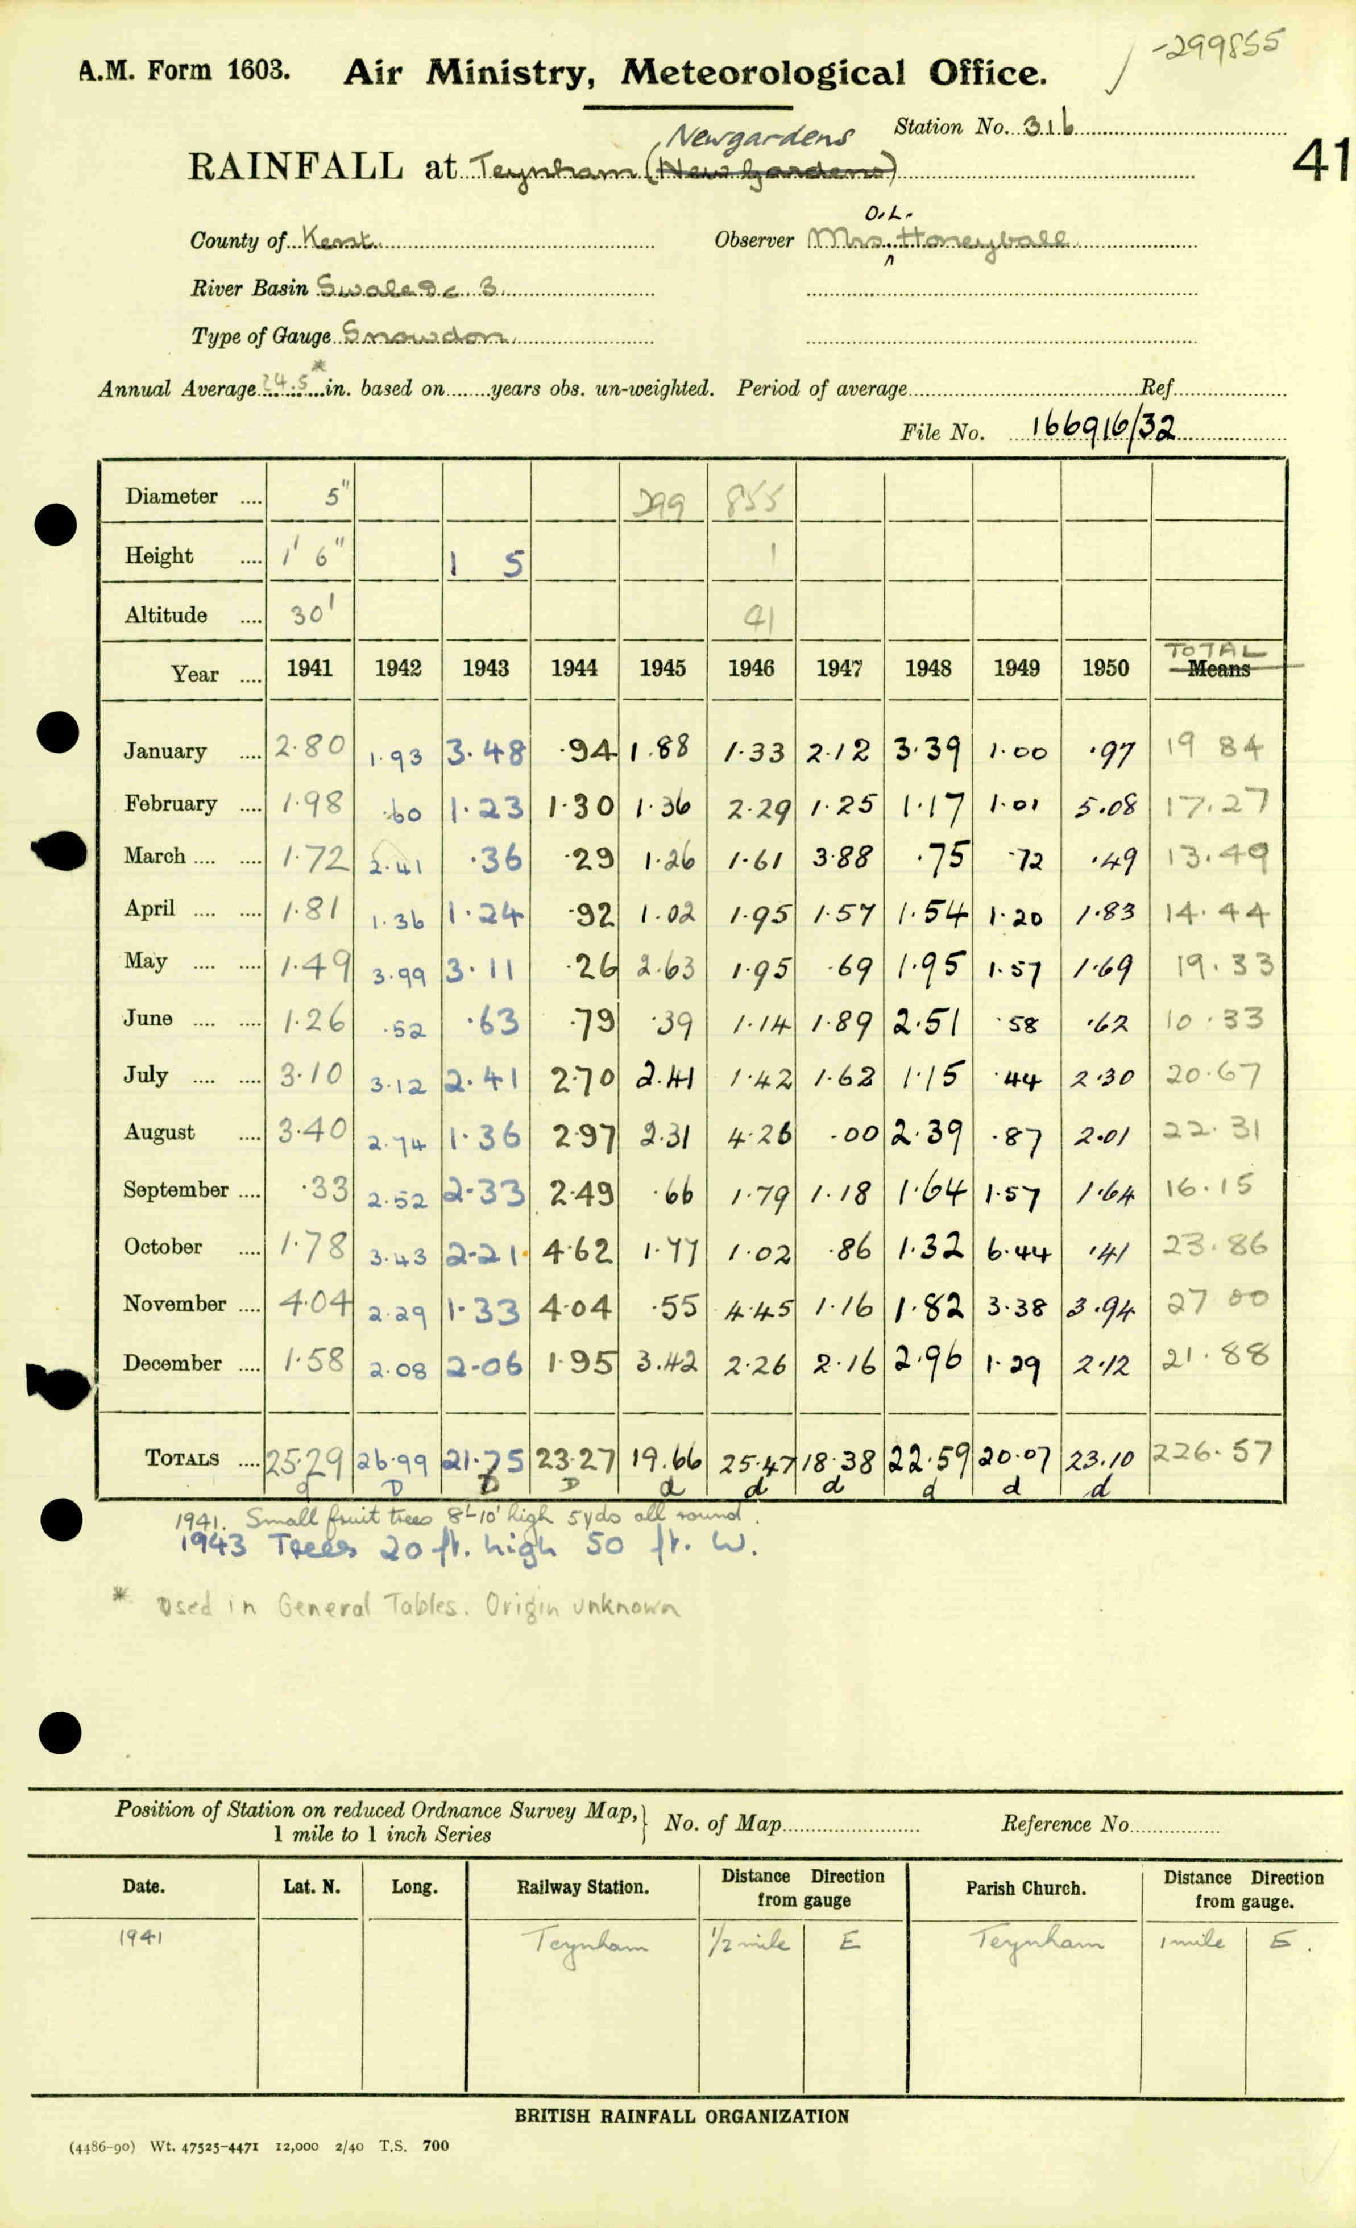 -299855
A.M. Form 1603. Air Ministry, Meteorological Office.
Station No. 316
41
Newgardens
RAINFALL at Teynham (New Gardens)
O.L.
County of Kent Observer Mrs. Honeyball
River Basin Swale &c 3
Type of Gauge Snowdon
Annual Average 24.5* in. based on ........ years obs. un-weighted. Period of average ........ Ref ........
File No. 166916/32
Diameter .... 5" 299 855
Height .... 1' 6" 1 5 1
Altitude .... 30' 41
TOTAL
Year .... 1941 1942 1943 1944 1945 1946 1947 1948 1949 1950 Means
January .... 2.80 1.93 3.48 .94 1.88 1.33 2.12 3.39 1.00 .97 19 84
February .... 1.98 .60 1.23 1.30 1.36 2.29 1.25 1.17 1.01 5.08 17.27
March .... .... 1.72 2.41 .36 .29 1.26 1.61 3.88 .75 .72 .49 13.49
April .... .... 1.81 1.36 1.24 .92 1.02 1.95 1.57 1.54 1.20 1.83 14.44
May .... .... 1.49 3.99 3.11 .26 2.63 1.95 .69 1.95 1.57 1.69 19.33
June .... .... 1.26 .52 .63 .79 .39 1.14 1.89 2.51 .58 .62 10.33
July .... .... 3.10 3.12 2.41 2.70 2.41 1.42 1.62 1.15 .44 2.30 20.67
August .... 3.40 2.74 1.36 2.97 2.31 4.26 .00 2.39 .87 2.01 22.31
September .... .33 2.52 2.33 2.49 .66 1.79 1.18 1.64 1.57 1.64 16.15
October .... 1.78 3.43 2.21 4.62 1.77 1.02 .86 1.32 6.44 .41 23.86
November .... 4.04 2.29 1.33 4.04 .55 4.45 1.16 1.82 3.38 3.94 27 00
December .... 1.58 2.08 2.06 1.95 3.42 2.26 2.16 2.96 1.29 2.12 21.88
TOTALS .... 25.29 26.99 21.75 23.27 19.66 25.47 18.38 22.59 20.07 23.10 226.57
d D D D d d d d d d
1941. Small fruit trees 8'-10' high 5yds all round.
1943 Trees 20 ft. high 50 ft. W.
* Used in General Tables. Origin unknown
Position of Station on reduced Ordnance Survey Map, 1 mile to 1 inch Series } No. of Map ........ Reference No. ........
Date. Lat. N. Long. Railway Station. Distance Direction from gauge Parish Church. Distance Direction from gauge.
1941 Teynham 1/2 mile E Teynham 1 mile E.
BRITISH RAINFALL ORGANIZATION
(4486-90) Wt. 47525-4471 12,000 2/40 T.S. 700